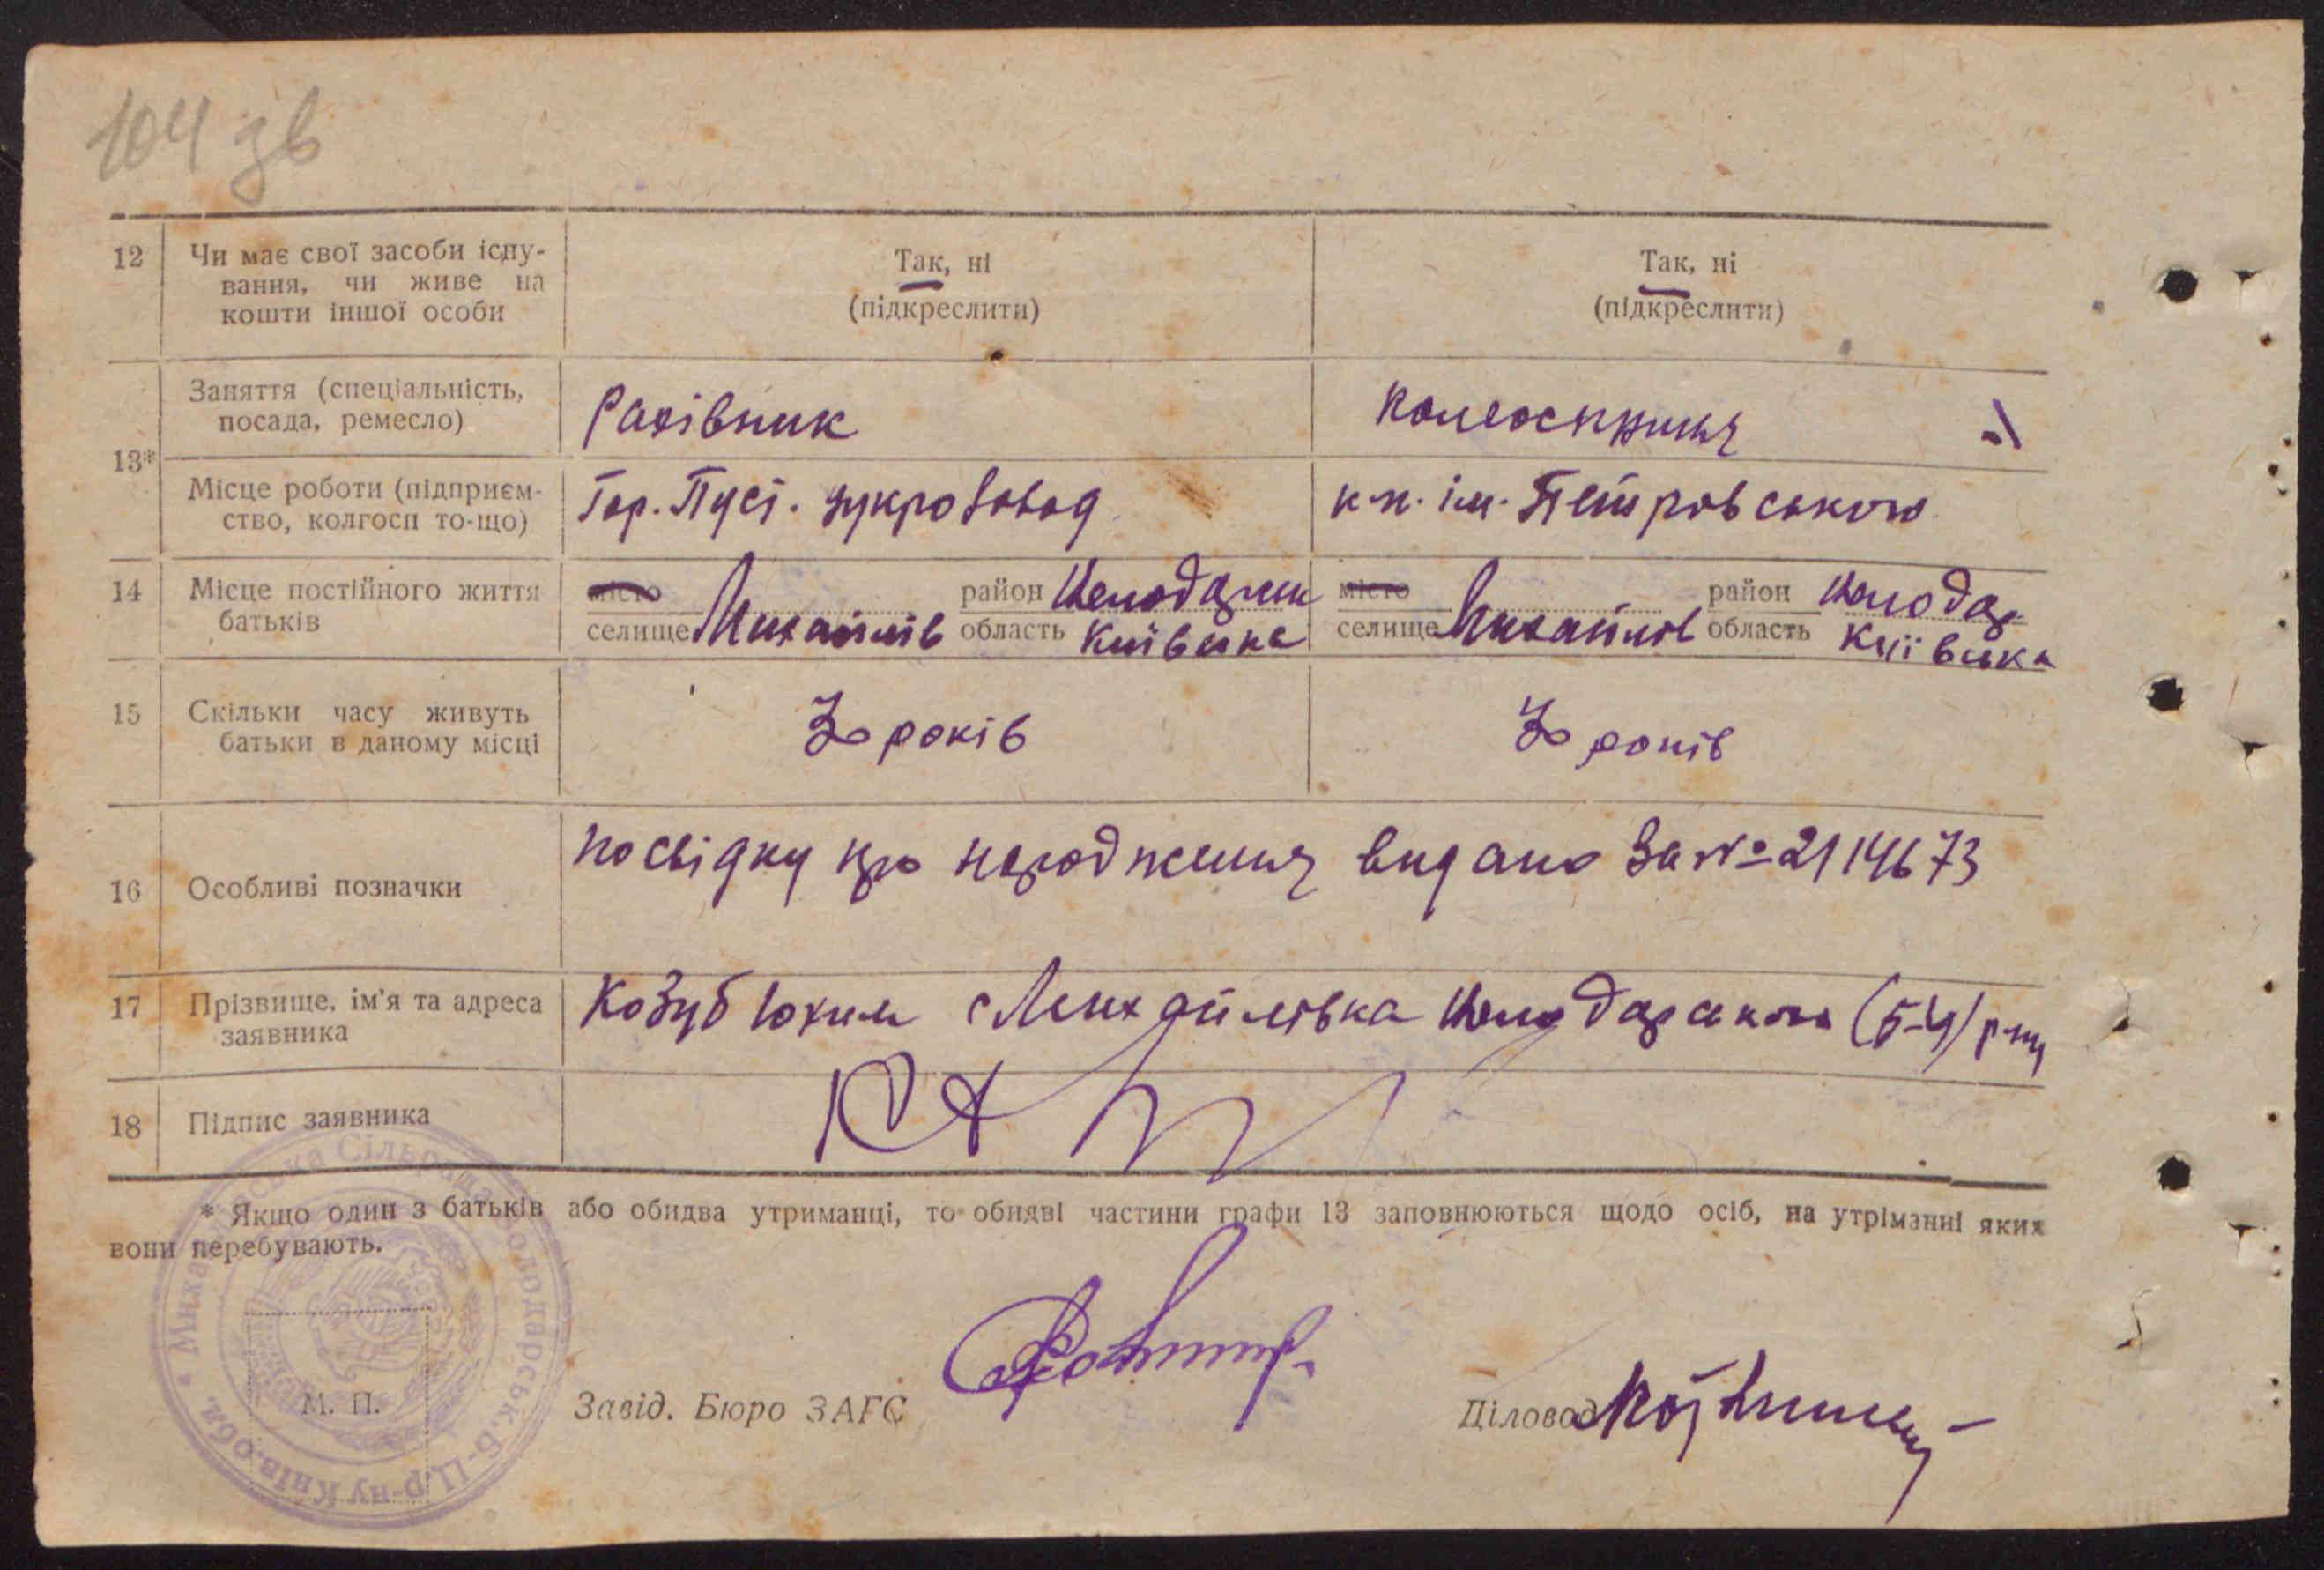 104 зв
12 Чи має свої засоби існу-
вання, чи живе на
кошти іншої особи
Так, ні
(підкреслити)
Так, ні
(підкреслити)
13*
Заняття (спеціальність,
посада, ремесло)
Рахівник
колгоспниця
Місце роботи (підприєм-
ство, колгосп то-що)
Гор. Пуст. цукрозавод
к-п. ім. Петровського
14 Місце постійного життя
батьків
місто
селище Михайлів
район Володарськ
область Київська
місто
селище Михайлів
район Володар
область Київська
15 Скільки часу живуть
батьки в даному місці
30 років
30 років
16 Особливі позначки
посвідку про народження видано за № 2114673
17 Прізвище, ім'я та адреса
заявника
Козуб Юхим с Михайлівка Володарського (Б-Ц) р-ну
18 Підпис заявника
* Якщо один з батьків або обидва утриманці, то обидві частини графи 13 заповнюються щодо осіб, на утріманні яких
вони перебувають.
М. П.
Завід. Бюро ЗАГС
Діловод
Сільрада Володарськ. Б-Ц. р-ну Київ. обл.